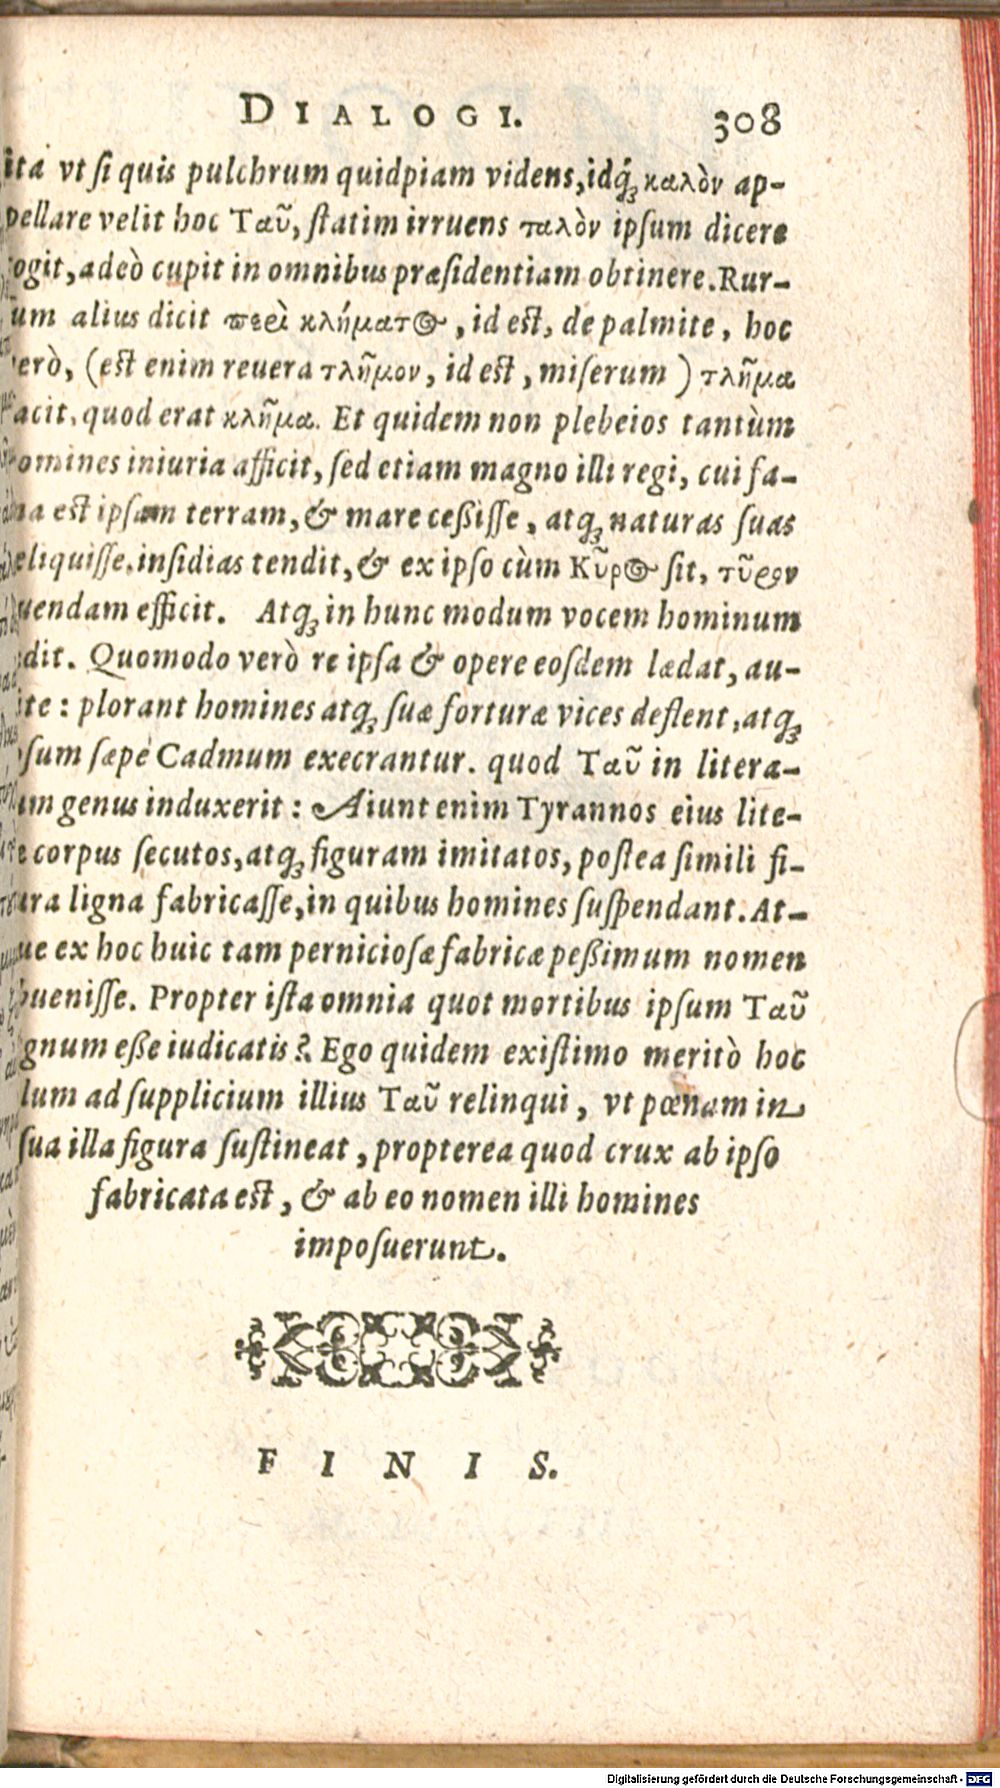 DIALOGI. 308
ita vt si quis pulchrum quidpiam videns, idq́; καλὸν ap-
pellare velit hoc Ταῦ, statim irruens ταλὸν ipsum dicere
ogit, adeò cupit in omnibus præsidentiam obtinere. Rur-
um alius dicit περὶ κλήματος, id est, de palmite, hoc
erò, (est enim reuera τλῆμον, id est, miserum) τλῆμα
acit, quod erat κλῆμα. Et quidem non plebeios tantùm
omines iniuria afficit, sed etiam magno illi regi, cui fa-
na est ipsam terram, & mare ceßisse, atq; naturas suas
eliquisse, insidias tendit, & ex ipso cùm Κῦρος sit, τῦρον
uendam efficit. Atq; in hunc modum vocem hominum
dit. Quomodo verò re ipsa & opere eosdem lædat, au-
ite: plorant homines atq; suæ forturæ vices deflent, atq;
sum sæpè Cadmum execrantur. quod Ταῦ in litera-
um genus induxerit: Aiunt enim Tyrannos eius lite-
e corpus secutos, atq; figuram imitatos, postea simili fi-
ura ligna fabricasse, in quibus homines suspendant. At-
ue ex hoc huic tam perniciosæ fabricæ peßimum nomen
uenisse. Propter ista omnia quot mortibus ipsum Ταῦ
gnum eße iudicatis? Ego quidem existimo meritò hoc
lum ad supplicium illius Ταῦ relinqui, vt pœnam in
sua illa figura sustineat, propterea quod crux ab ipso
fabricata est, & ab eo nomen illi homines
imposuerunt.
FINIS.
Digitalisierung gefördert durch die Deutsche Forschungsgemeinschaft - DFG